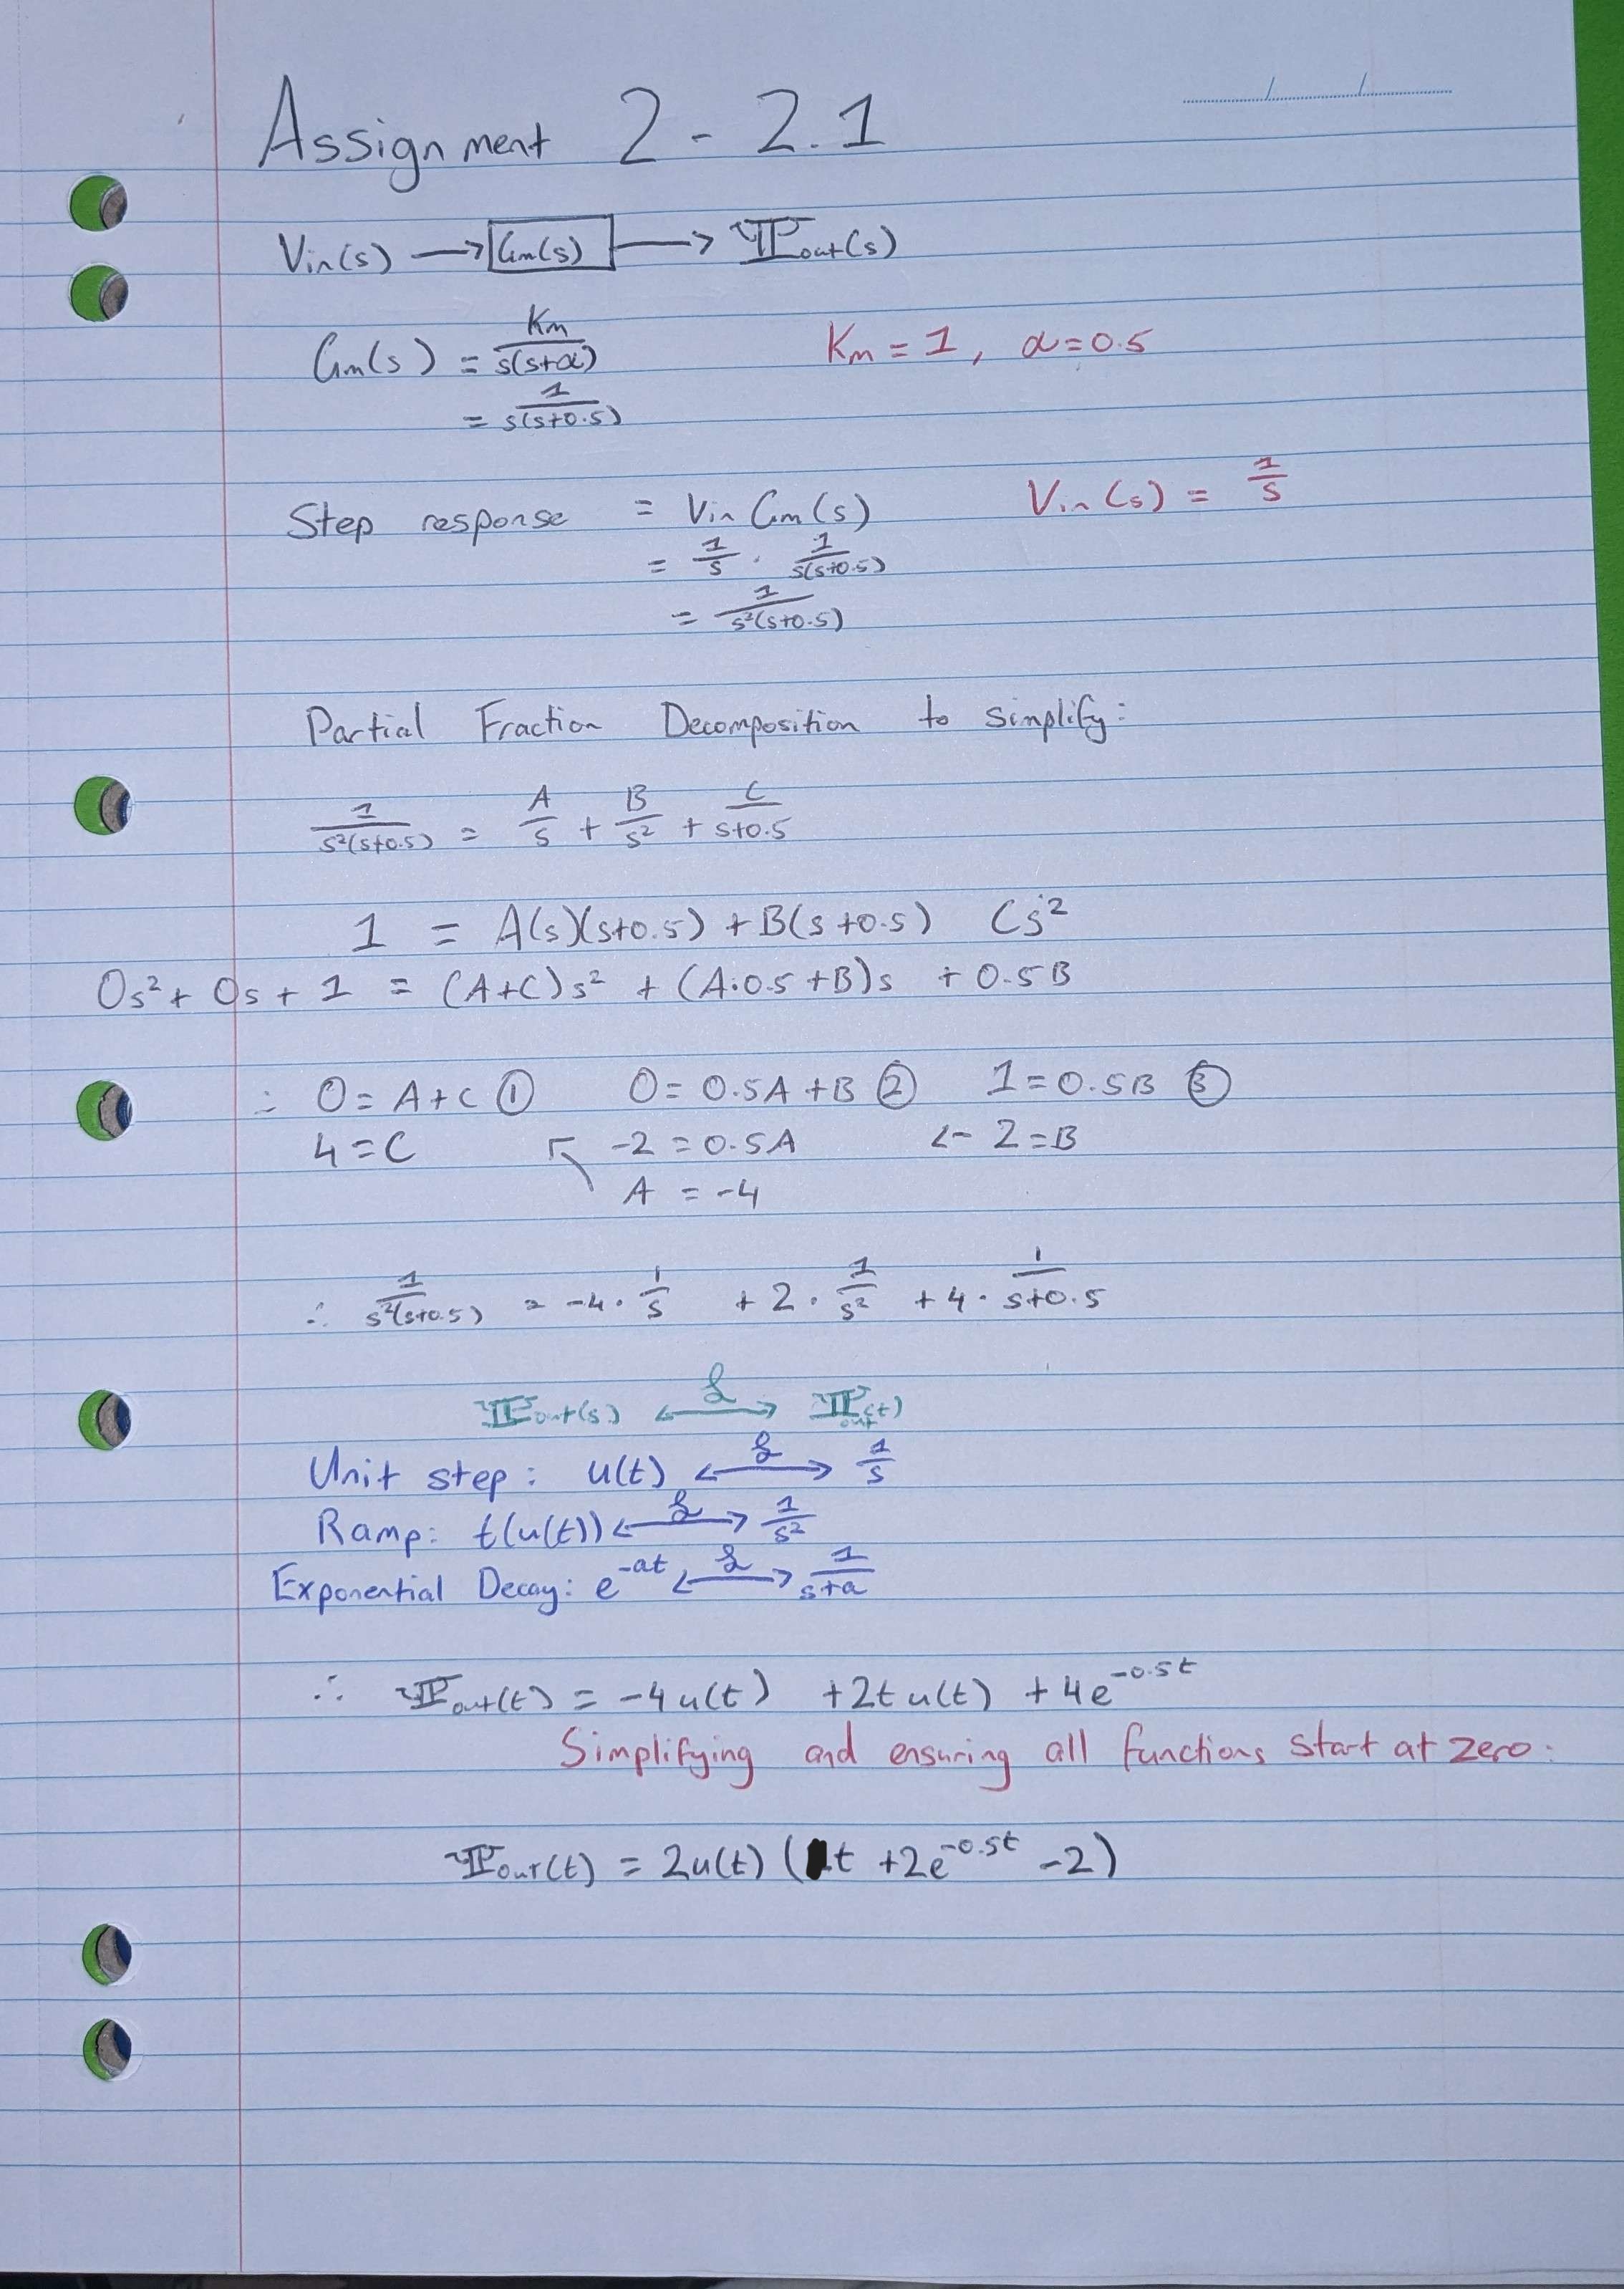 Assignment 2 - 2.1
Vin(s) → Gm(s) → Ψout(s)
Gm(s) = Km / s(s+α)    Km = 1, α = 0.5
= 1 / s(s+0.5)
Step response = Vin Gm(s)    Vin(s) = 1/s
= 1/s · 1 / s(s+0.5)
= 1 / s²(s+0.5)
Partial Fraction Decomposition to simplify:
1 / s²(s+0.5) = A/s + B/s² + C / s+0.5
1 = A(s)(s+0.5) + B(s+0.5) Cs²
0s² + 0s + 1 = (A+C)s² + (A·0.5+B)s + 0.5B
∴ 0 = A+C ① 0 = 0.5A + B ② 1 = 0.5B ③
4 = C ↖ -2 = 0.5A ← 2 = B
A = -4
∴ 1 / s²(s+0.5) = -4 · 1/s + 2 · 1/s² + 4 · 1 / s+0.5
Ψout(s) ⟷ℒ Ψout(t)
Unit step: u(t) ⟷ℒ 1/s
Ramp: t(u(t)) ⟷ℒ 1/s²
Exponential Decay: e^-at ⟷ℒ 1 / s+a
∴ Ψout(t) = -4u(t) + 2t u(t) + 4e^-0.5t
Simplifying and ensuring all functions start at zero:
Ψout(t) = 2u(t) (t + 2e^-0.5t - 2)